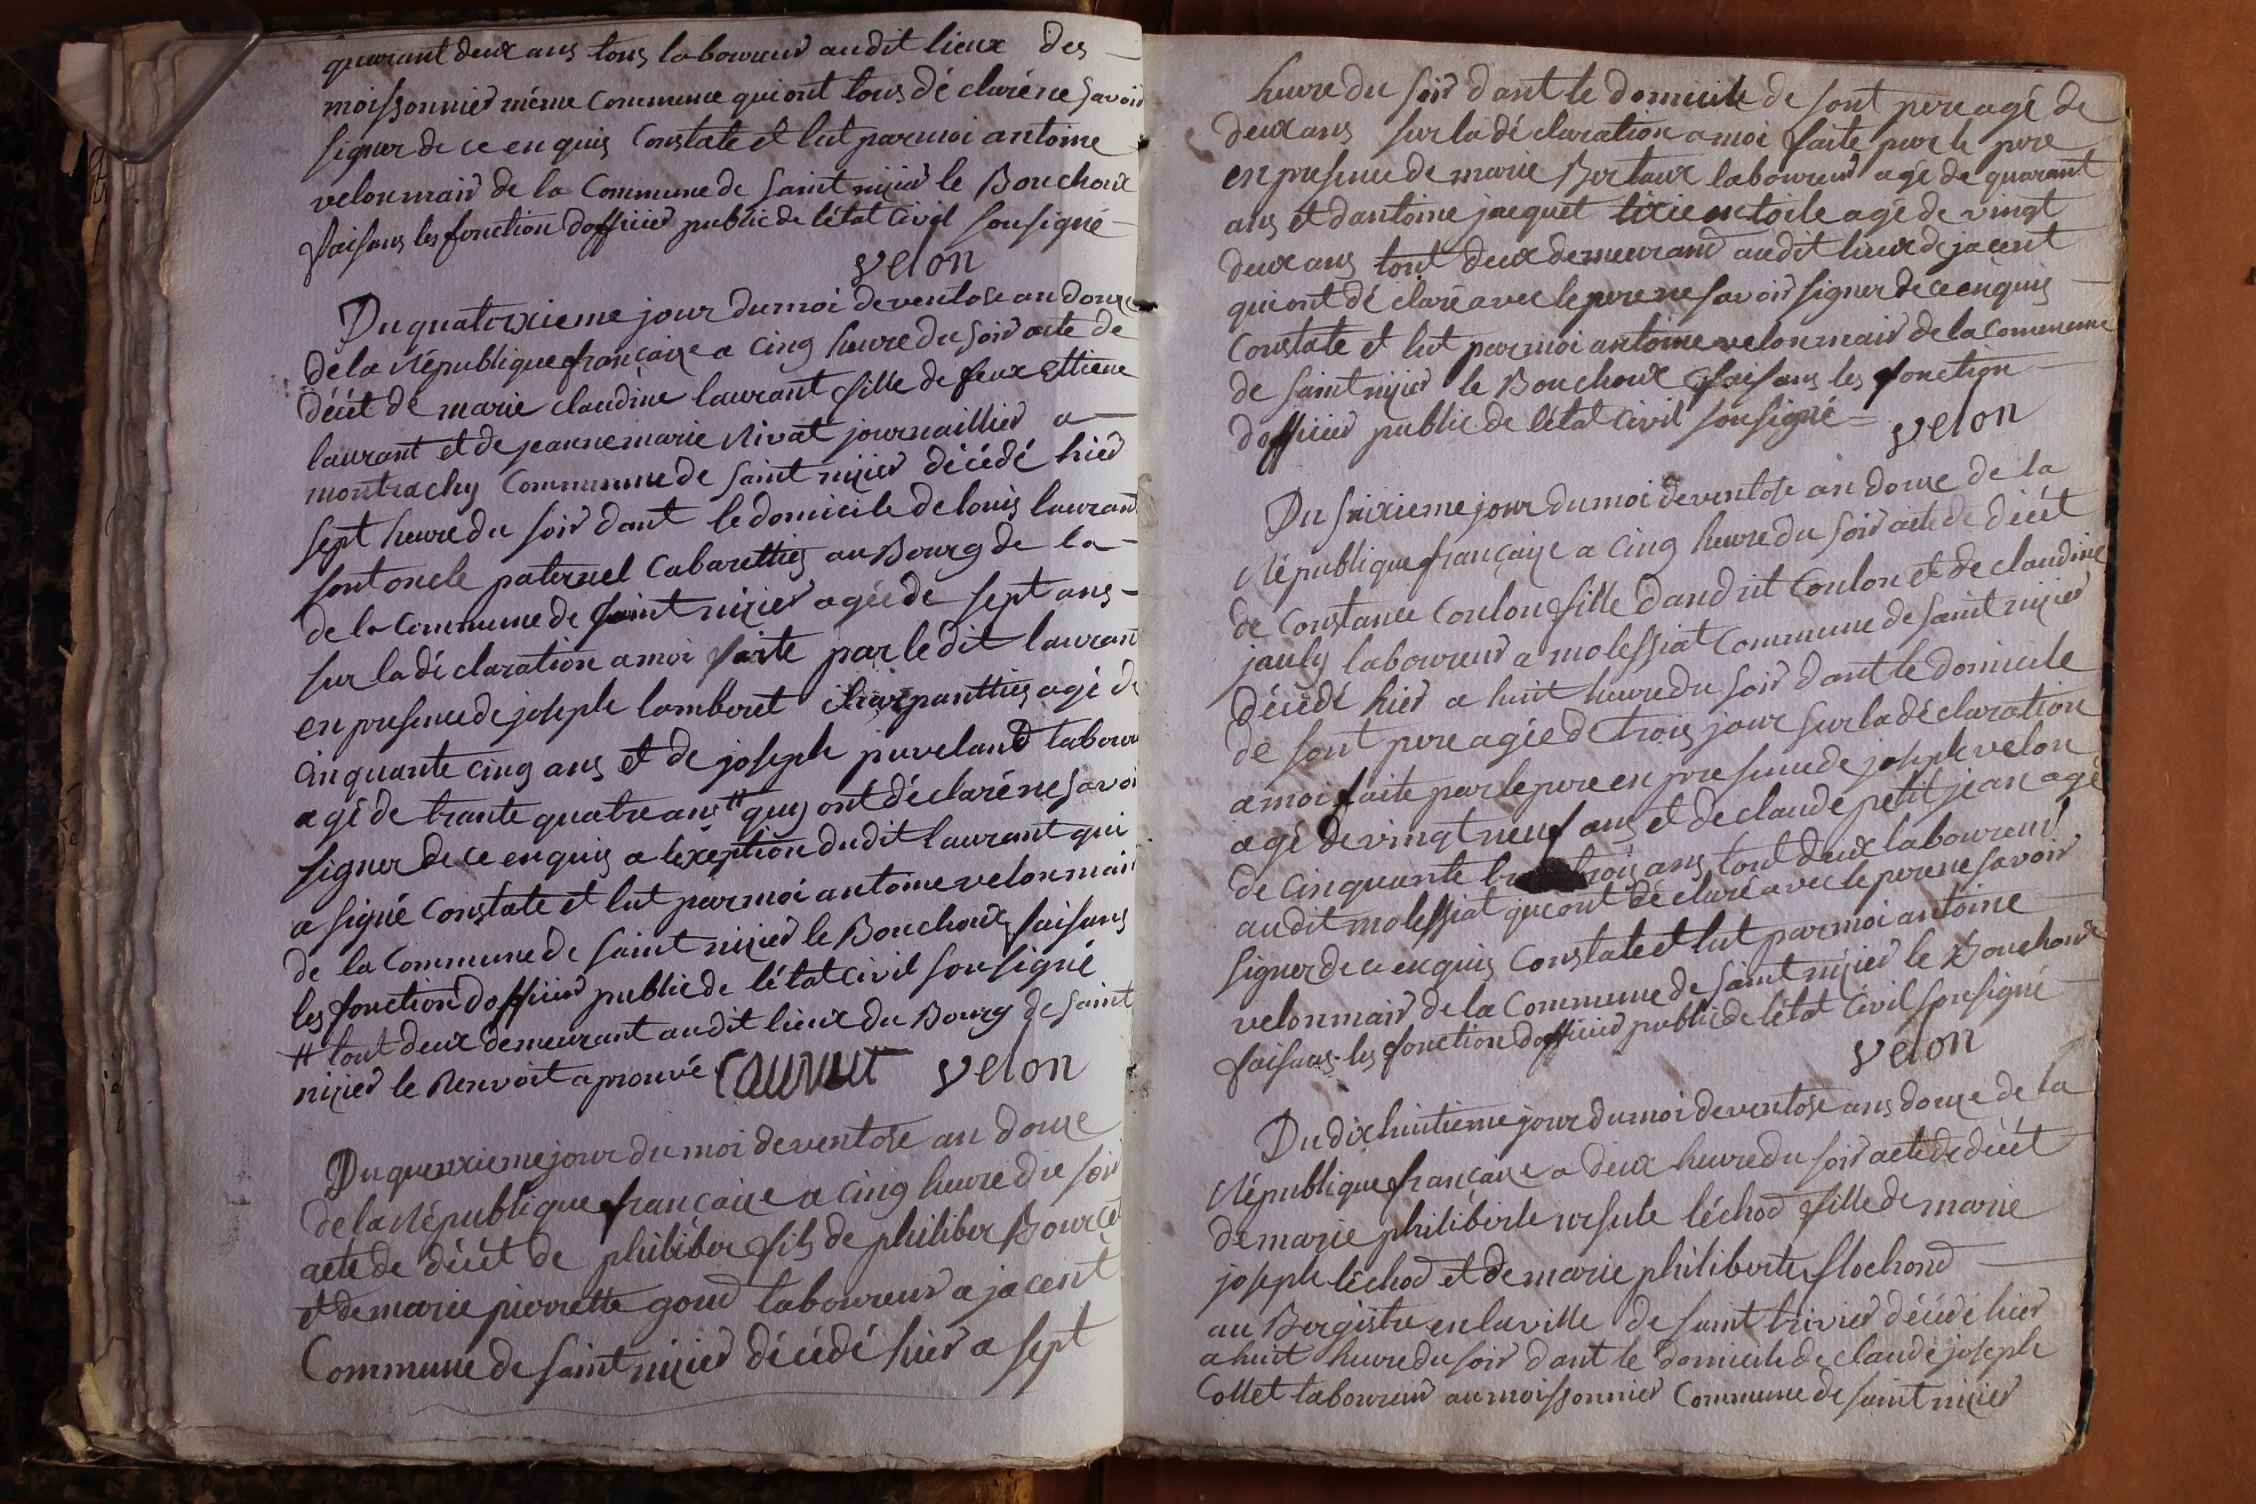 quarant deux ans tous laboureur audit lieux des
moissonnier même Commune qui ont tous dé claré ne savoir
signer de ce en quis Constate et lut par moi antoine
velon mair de la Commune de saint nizier le Bouchoux
faisans les fonction dofficier public de létat Civil sousigné
velon
Du quatorzieme jour du moi de ventose an douze
de la République française a Cinq heure du soir acte de
décét de marie claudine laurant fille de feux Ettiene
laurant et de jeanne marie Rivat journaillier a
montrachy Commune de saint nizier décédé hier
sept heure du soir dant le domicile de louis laurant
sont oncle paternel Cabaretties au Bourg de la
de la Commune de saint nizier agée de sept ans
sur la dé claration a moi faite par le dit laurant
en presence de joseph lamberet charpantties agé de
Cinquante Cinq ans et de joseph puveland labour
agé de trante quatre ans # quy ont déclaré ne savoi
signer de ce en quis a léxeption dudit laurant qui
a signé Constate et lut par moi antoine velon mair
de la Commune de saint nizier le Bouchoux faisans
les fonction dofficier public de létat Civil sousigné
# tout deux demeurant audit lieux du Bourg de saint
nizier le Renvoit aprouvé laurant velon
Du quinzieme jour du moi de ventose an douze
de la République française a Cinq heure du soir
acte de décét de philiber fils de philiber Bourcet
et de marie pierrette goud laboureur a jacent
Commune de saint nizier décédé hier a sept
heure du soir dant le domicile de sont pere agé de
deux ans sur la dé claration a moi faite par le pere
en presence de marie Bertaux laboureur agé de quarant
ans et dantoine jacquet tixier en toile agé de vingt
deux ans tout deux demeurand audit lieux de jacent
qui ont dé claré avec le pere ne savoir signer de ce en quis
Constate et lut par moi antoine velon mair de la Commune
de saint nizier le Bouchoux faisans les fonction
dofficier public de létat Civil sousigné
velon
Du seizieme jour du moi de ventose an douze de la
République française a Cinq heure du soir acte de décét
de Constance Coulon fille dandrit Coulon et de claudine
jauly laboureur a molessiat Commune de saint nizier
décédé hier a huit heure du soir dant le domicile
de sont pere agée de trois jour sur la dé claration
a moi faite par le pere en presence de joseph velon
agé de vingt neuf ans et de claude petit jean agé
de cinquante trois ans tout deux laboureur
audit molessiat qui ont dé claré avec le pere ne savoir
signer de ce en quis Constate et lut par moi antoine
velon mair de la Commune de saint nizier le Bouchoux
faisans les fonction dofficier public de létat Civil sousigné
velon
Du dix huitieme jour du moi de ventose ans douze de la
République française a deux heure du soir acte de décét
de marie philiberte ursule léchod fille de marie
joseph léchod et de marie philiberte flochond
au Bergistre en la ville de saint trivier décédé hier
a huit heure du soir dant le domicile de claude joseph
Collet laboureur au moissonnier Commune de saint nizier